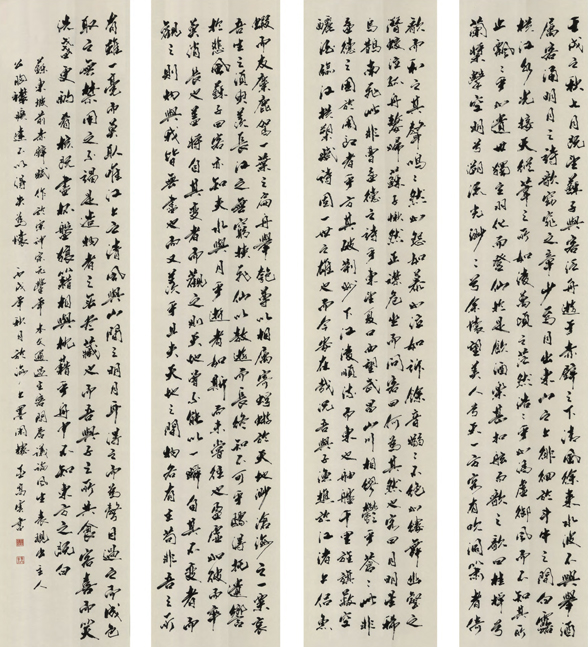 壬戌之秋七月既望蘇子與客泛舟遊于赤壁之下清風徐來水波不興舉酒
屬客誦明月之詩歌窈窕之章少焉月出東山之上徘徊於斗牛之間白露
橫江水光接天縱一葦之所如凌萬頃之茫然浩浩乎如馮虛御風而不知其所
止飄飄乎如遺世獨立羽化而登仙於是飲酒樂甚扣舷而歌之歌曰桂棹兮
蘭槳擊空明兮溯流光渺渺兮余懷望美人兮天一方客有吹洞簫者倚
歌而和之其聲嗚嗚然如怨如慕如泣如訴餘音嫋嫋不絕如縷舞幽壑之
潛蛟泣孤舟嫠婦蘇子愀然正襟危坐而問客曰何為其然也客曰月明星稀
烏鵲南飛此非曹孟德之詩乎東望夏口西望武昌山川相繆鬱乎蒼蒼此非
孟德之困於周郎者乎方其破荊州下江陵順流而東也舳艫千里旌旗蔽空
釃酒臨江橫槊賦詩固一世之雄也而今安在哉況吾與子漁樵於江渚上侶魚
蝦而友麋鹿駕一葉之扁舟舉匏尊以相屬寄蜉蝣於天地渺滄海之一粟哀
吾生之須臾羨長江之無窮挾飛仙以遨遊而長終知不可乎驟得托遺響
於悲風蘇子曰客亦知夫水與月乎逝者如斯而未嘗往也盈虛如彼而卒
莫消長也蓋將自其變者而觀之則天地曾不能以一瞬自其不變者而
觀之則物與我皆無盡也而又羨乎且夫天地之間物各有主苟非吾之所
有雖一毫而莫取惟江上之清風與山間之明月耳得之而為聲目遇之而成色
取之無禁用之不竭是造物者之無盡藏也而吾與子之所共食客喜而笑
洗盞更酌肴核既盡杯盤狼藉相與枕藉乎舟中不知東方之既白
蘇東坡前赤壁賦作於宋神宗元豐年 主客問答 主人
丙戌年秋月於海上墨閑樓 書